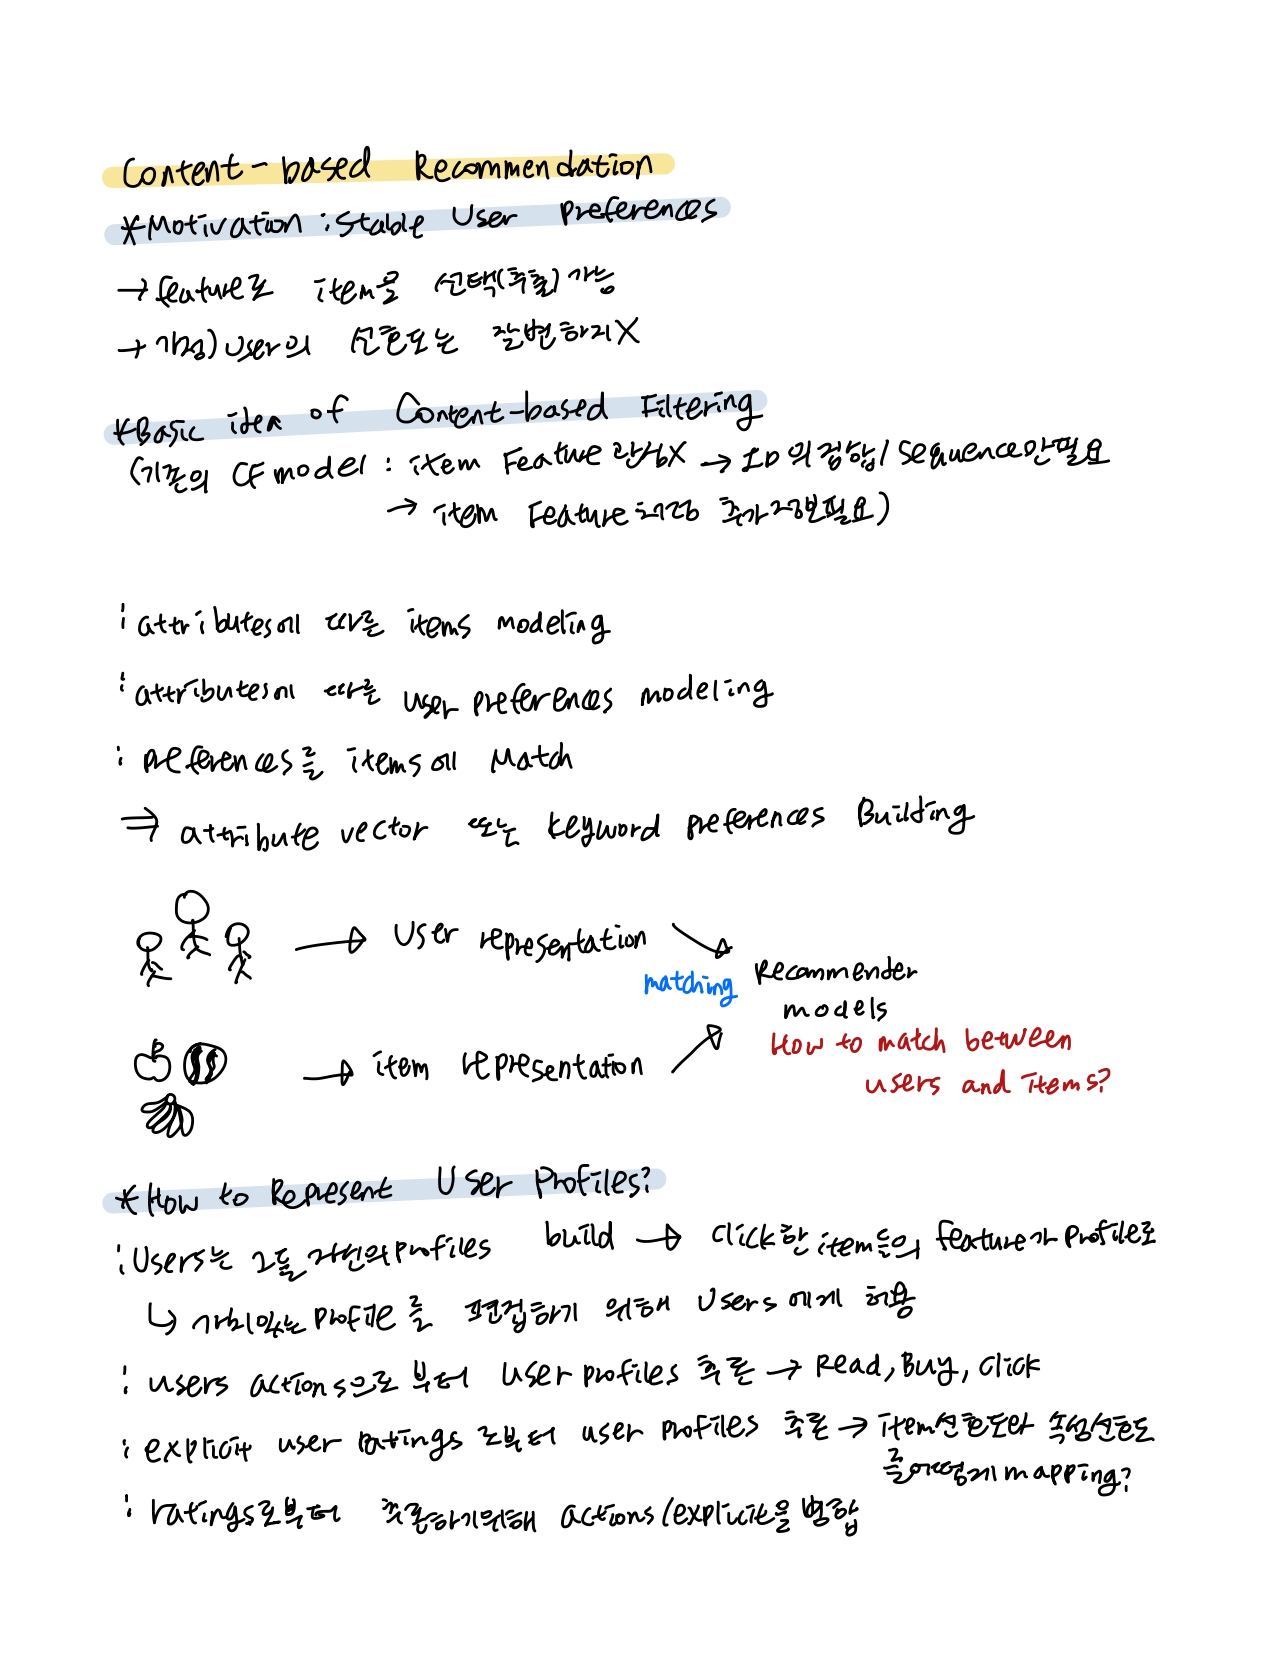 Content-based Recommendation
*Motivation : Stable User Preferences
→ feature로 item을 선택(추출)가능
→ 가정) user의 선호도는 잘변하지X
*Basic idea of Content-based Filtering
(기존의 CF model : item Feature 관심X → ID의 결합/Sequence만필요
→ item Feature 추가정보필요)
: attributes에 따른 items modeling
: attributes에 따른 user preferences modeling
: preferences를 items에 Match
⇒ attribute vector 또는 keyword preferences Building
→ User representation
matching
Recommender
models
→ item representation
How to match between
users and items?
*How to Represent User Profiles?
: Users는 그들 자신의 profiles build → click한 item들의 feature가 profile로
↳ 가치있는 profile을 편집하기 위해 users에게 허용
: users actions으로부터 user profiles 추론 → Read, Buy, Click
: explicit user ratings로부터 user profiles 추론 → item선호도와 속성선호도
를어떻게 mapping?
: ratings로부터 추론하기위해 actions/explicit을 병합